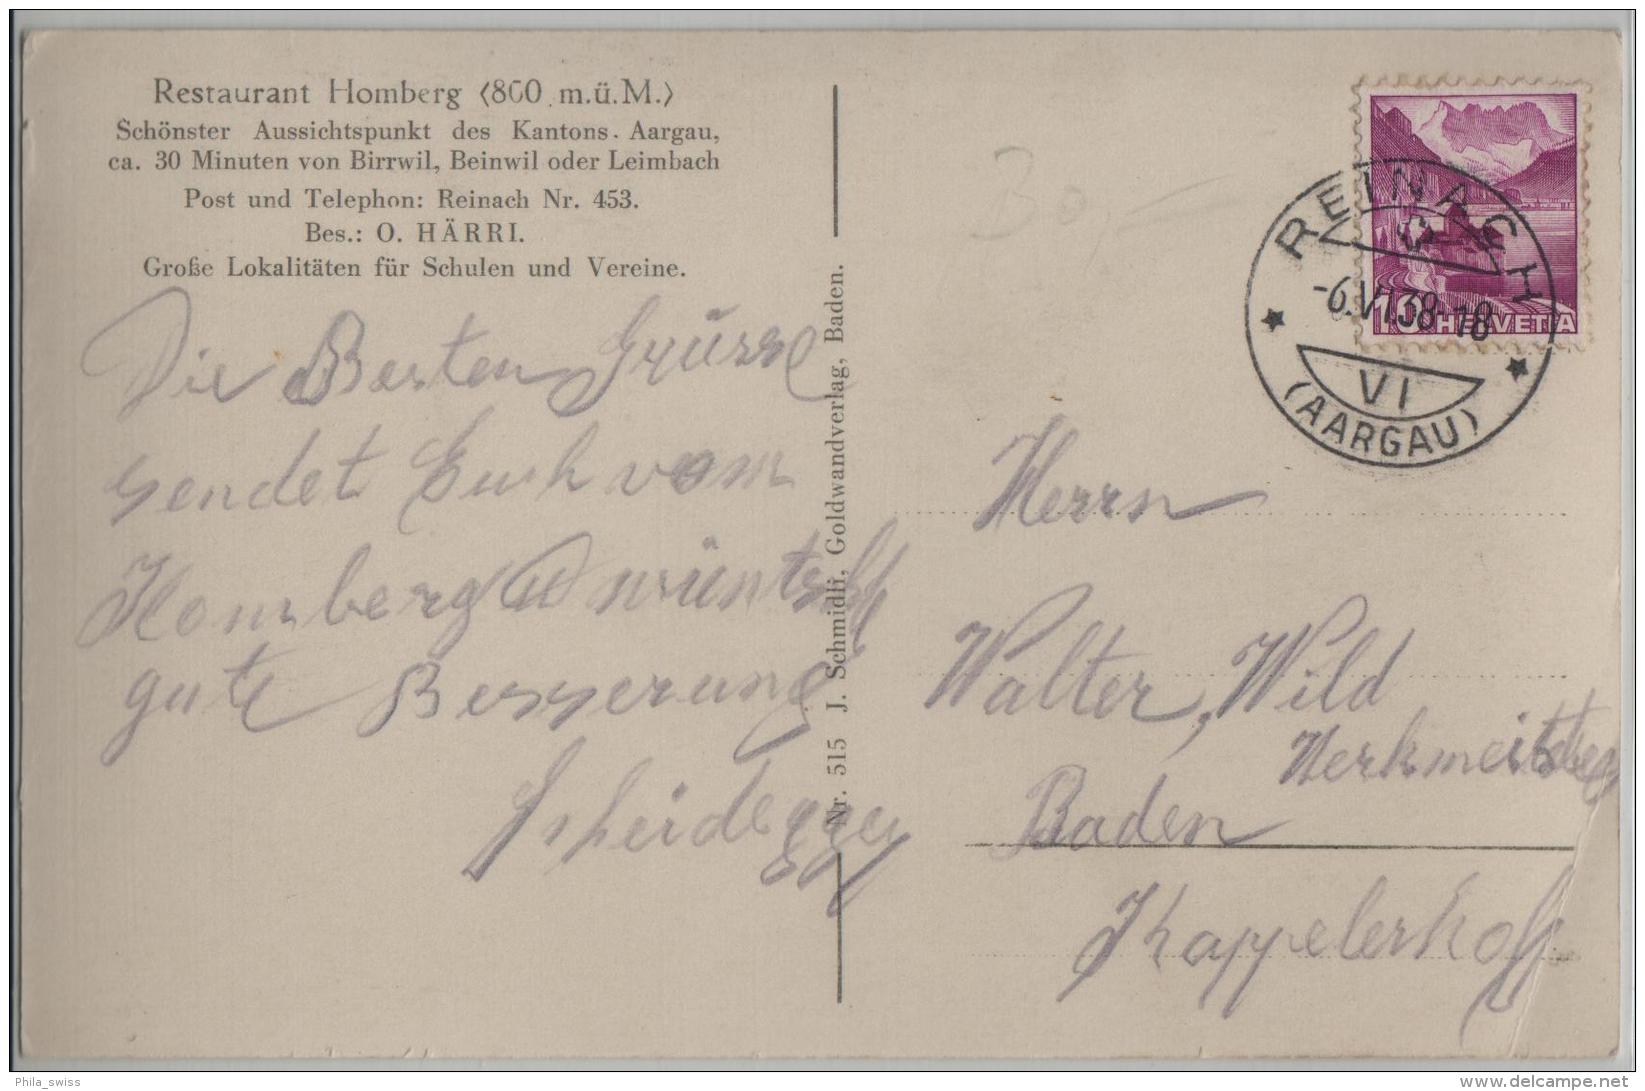 Restaurant Homberg (800 m.ü.M.)
Schönster Aussichtspunkt des Kantons Aargau,
ca. 30 Minuten von Birrwil, Beinwil oder Leimbach
Post und Telephon: Reinach Nr. 453.
Bes.: O. HÄRRI.
Große Lokalitäten für Schulen und Vereine.
Die Besten Grüsse
sendet Euch vom
Homberg u wüntscht
gute Besserung
Scheidegger
Nr. 515 J. Schmidli, Goldwandverlag, Baden.
30,-
REINACH
-6.VI.38-18
VI
(AARGAU)
10 HELVETIA
Herrn
Walter, Wild
Werkmeister
Baden
Kappelerhof
Phila_swiss
www.delcampe.net